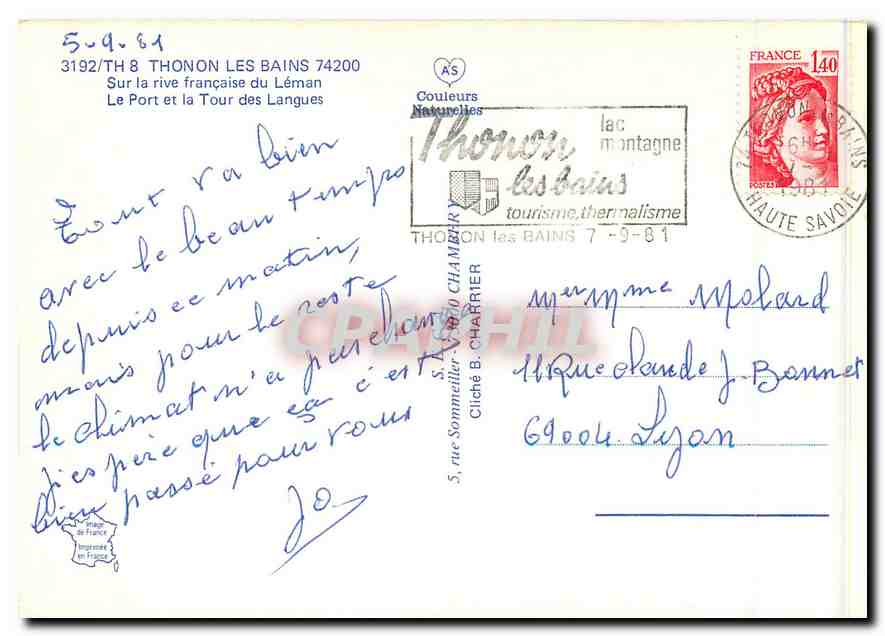 5-9-81
3192/TH 8 THONON LES BAINS 74200
Sur la rive française du Léman
Le Port et la Tour des Langues
A*S
Couleurs
Naturelles
Tout va bien
avec le beau temps
depuis ce matin,
mais pour le reste
le climat n'a pas changé
j'espère que ça c'est
bien passé pour vous
Jo
Image
de France
Imprimée
en France
Thonon
les bains
lac
montagne
tourisme, thermalisme
THONON les BAINS 7 -9-81
FRANCE
1,40
POSTES
74 THONON BAINS
16H
7-9
1981
HAUTE SAVOIE
5, rue Sommeiller - 73000 CHAMBERY
Cliché B. CHARRIER
CPARHIL
Mr Mme Molard
11 Rue Claude J. Bonnet
69004 Lyon